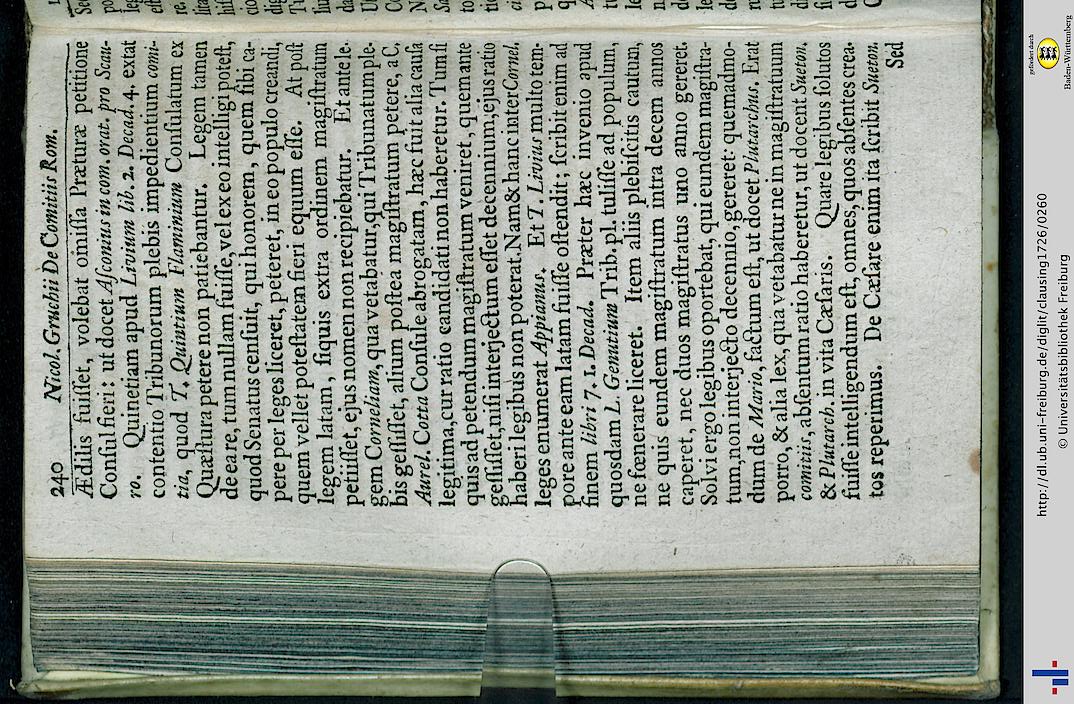 240 Nicol. Gruchii De Comitiis Rom.
Ædilis fuiſſet, volebat omiſſa Præturæ petitione
Conſul fieri: ut docet Aſconius in com. orat. pro Scau-
ro. Quinetiam apud Livium lib. 2. Decad. 4. extat
contentio Tribunorum plebis impedientium comi-
tia, quod T. Quintium Flaminium Conſulatum ex
Quæſtura petere non patiebantur. Legem tamen
de ea re, tum nullam fuiſſe, vel ex eo intelligi poteſt,
quod Senatus cenſuit, qui honorem, quem ſibi ca-
pere per leges liceret, peteret, in eo populo creandi,
quem vellet poteſtatem fieri equum eſſe. At poſt
legem latam, ſiquis extra ordinem magiſtratum
petiiſſet, ejus nomen non recipiebatur. Et ante le-
gem Corneliam, qua vetabatur, qui Tribunatum ple-
bis geſſiſſet, alium poſtea magiſtratum petere, a C,
Aurel. Cotta Conſule abrogatam, hæc fuit alia cauſa
legitima, cur ratio candidati non haberetur. Tum ſi
quis ad petendum magiſtratum veniret, quem ante
geſſiſſet, niſi interjectum eſſet decennium, ejus ratio
haberi legibus non poterat. Nam & hanc inter Cornel,
leges enumerat Appianus. Et T. Livius multo tem-
pore ante eam latam fuiſſe oſtendit; ſcribit enim ad
finem libri 7. 1. Decad. Præter hæc invenio apud
quosdam L. Genutium Trib. pl. tuliſſe ad populum,
ne fœnerare liceret. Item aliis plebiſcitis cautum,
ne quis eundem magiſtratum intra decem annos
caperet, nec duos magiſtratus uno anno gereret.
Solvi ergo legibus oportebat, qui eundem magiſtra-
tum, non interjecto decennio, gereret: quemadmo-
dum de Mario, factum eſt, ut docet Plutarchus. Erat
porro, & alia lex, qua vetabatur ne in magiſtratuum
comitiis, abſentum ratio haberetur, ut docent Sueton.
& Plutarch. in vita Cæſaris. Quare legibus ſolutos
fuiſſe intelligendum eſt, omnes, quos abſentes crea-
tos reperimus. De Cæſare enim ita ſcribit Sueton.
Sed
http://dl.ub.uni-freiburg.de/diglit/clausing1726/0260
© Universitätsbibliothek Freiburg
gefördert durch
Baden-Württemberg